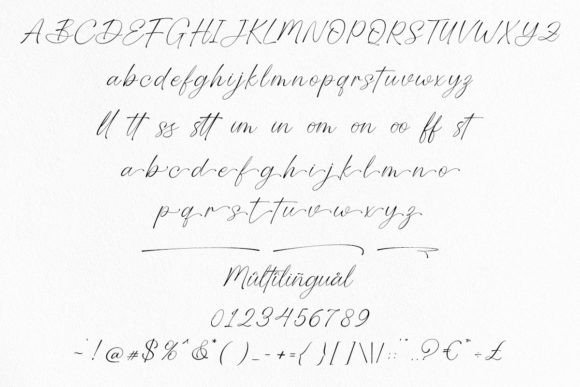 ABCDEFGHIJKLMNOPQRSTUVWXYZ
abcdefghijklmnopqrstuvwxyz
ll tt ss stt um un om on oo ff st
a b c d e f g h i j k l m n o
p q r s t u v w x y z
Mûltîlíñgùál
0123456789